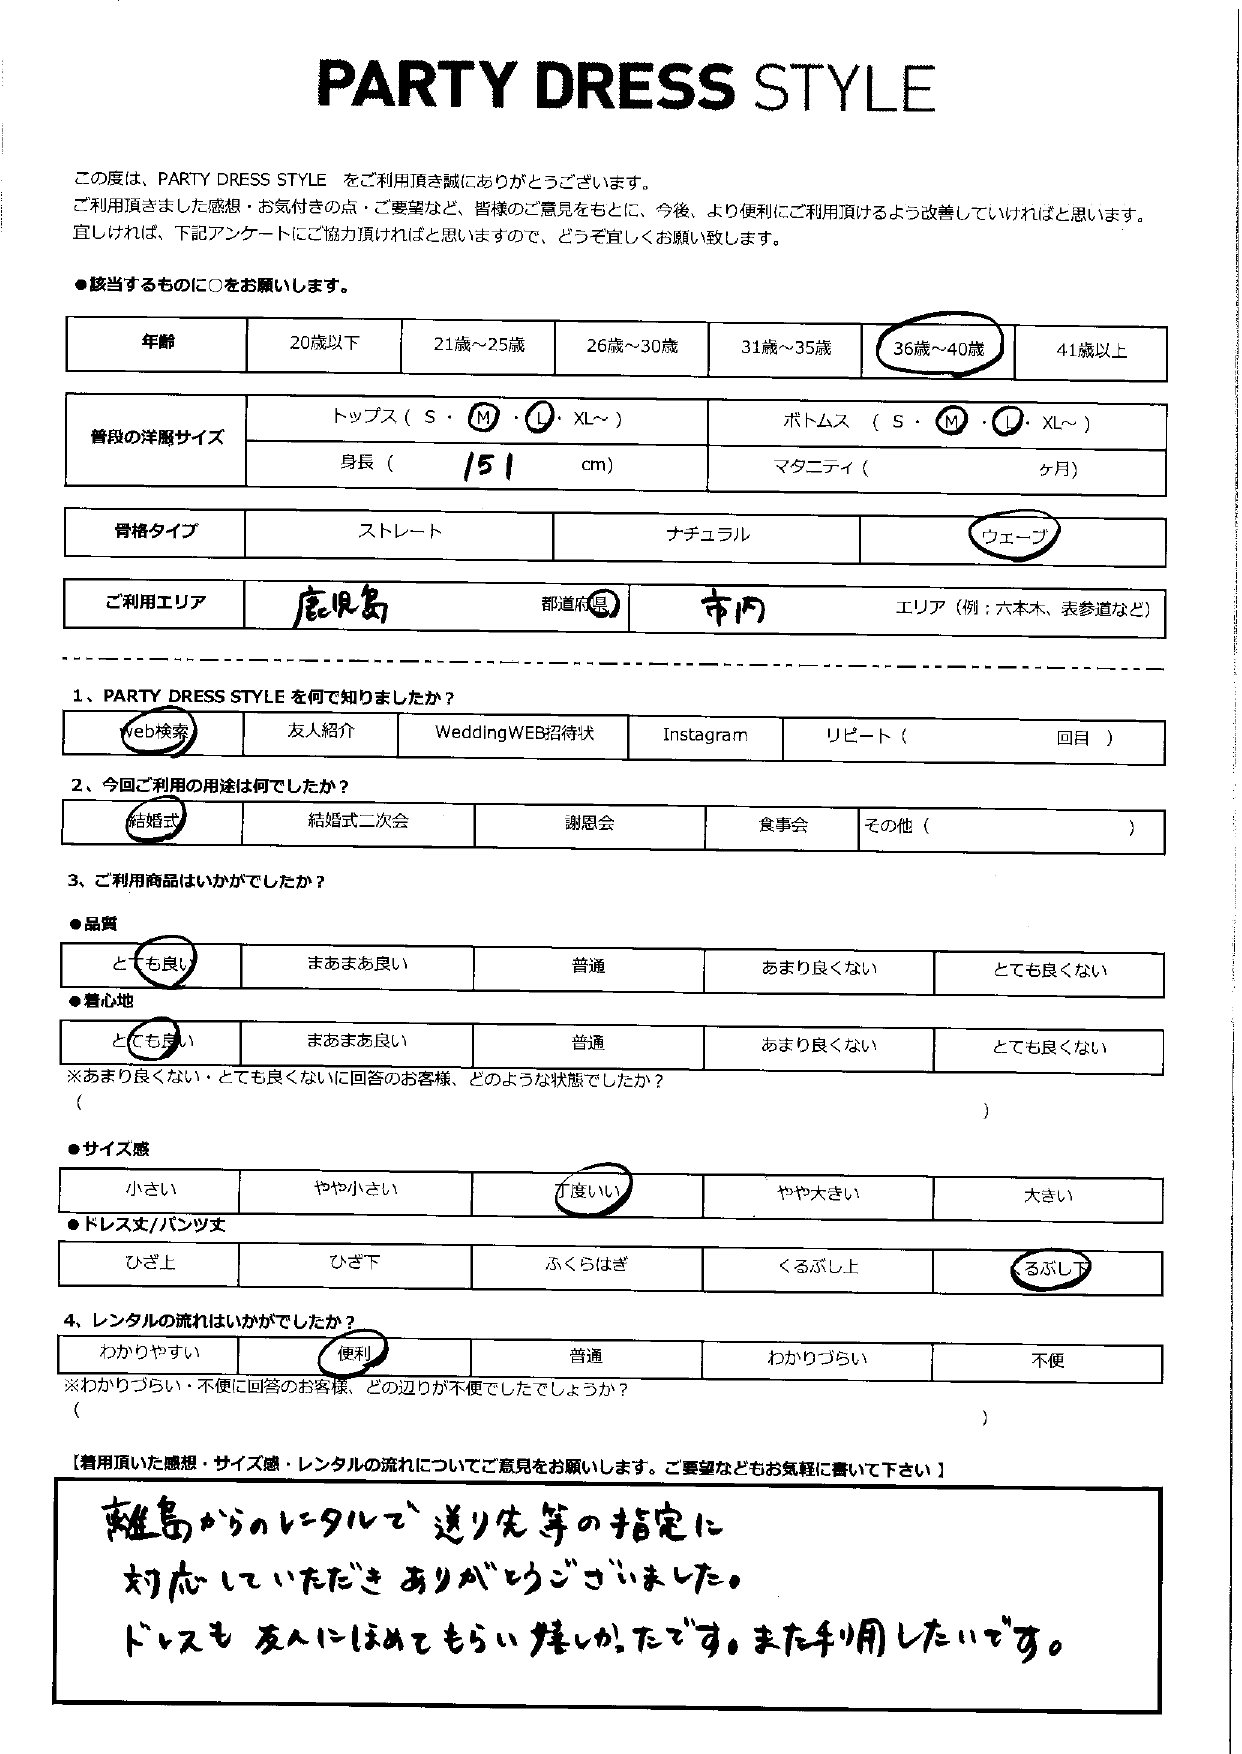 PARTY DRESS STYLE
この度は、PARTY DRESS STYLE をご利用頂き誠にありがとうございます。
ご利用頂きました感想・お気付きの点・ご要望など、皆様のご意見をもとに、今後、より便利にご利用頂けるよう改善していければと思います。
宜しければ、下記アンケートにご協力頂ければと思いますので、どうぞ宜しくお願い致します。
●該当するものに○をお願いします。
年齢 20歳以下 21歳～25歳 26歳～30歳 31歳～35歳 36歳～40歳 41歳以上
普段の洋服サイズ トップス ( S ・ M ・ L ・ XL～ ) ボトムス ( S ・ M ・ L ・ XL～ )
身長 ( 151 cm) マタニティ ( ヶ月)
骨格タイプ ストレート ナチュラル ウェーブ
ご利用エリア 鹿児島 都道府県 市内 エリア（例：六本木、表参道など）
1、PARTY DRESS STYLE を何で知りましたか？
Web検索 友人紹介 WeddingWEB招待状 Instagram リピート ( 回目 )
2、今回ご利用の用途は何でしたか？
結婚式 結婚式二次会 謝恩会 食事会 その他 ( )
3、ご利用商品はいかがでしたか？
●品質
とても良い まあまあ良い 普通 あまり良くない とても良くない
●着心地
とても良い まあまあ良い 普通 あまり良くない とても良くない
※あまり良くない・とても良くないに回答のお客様、どのような状態でしたか？
( )
●サイズ感
小さい やや小さい 丁度いい やや大きい 大きい
●ドレス丈/パンツ丈
ひざ上 ひざ下 ふくらはぎ くるぶし上 くるぶし下
4、レンタルの流れはいかがでしたか？
わかりやすい 便利 普通 わかりづらい 不便
※わかりづらい・不便に回答のお客様、どの辺りが不便でしたでしょうか？
( )
【着用頂いた感想・サイズ感・レンタルの流れについてご意見をお願いします。ご要望などもお気軽に書いて下さい 】
離島からのレンタルで 送り先等の指定に
対応していただき ありがとうございました。
ドレスも 友人にほめてもらい 嬉しかったです。また利用したいです。